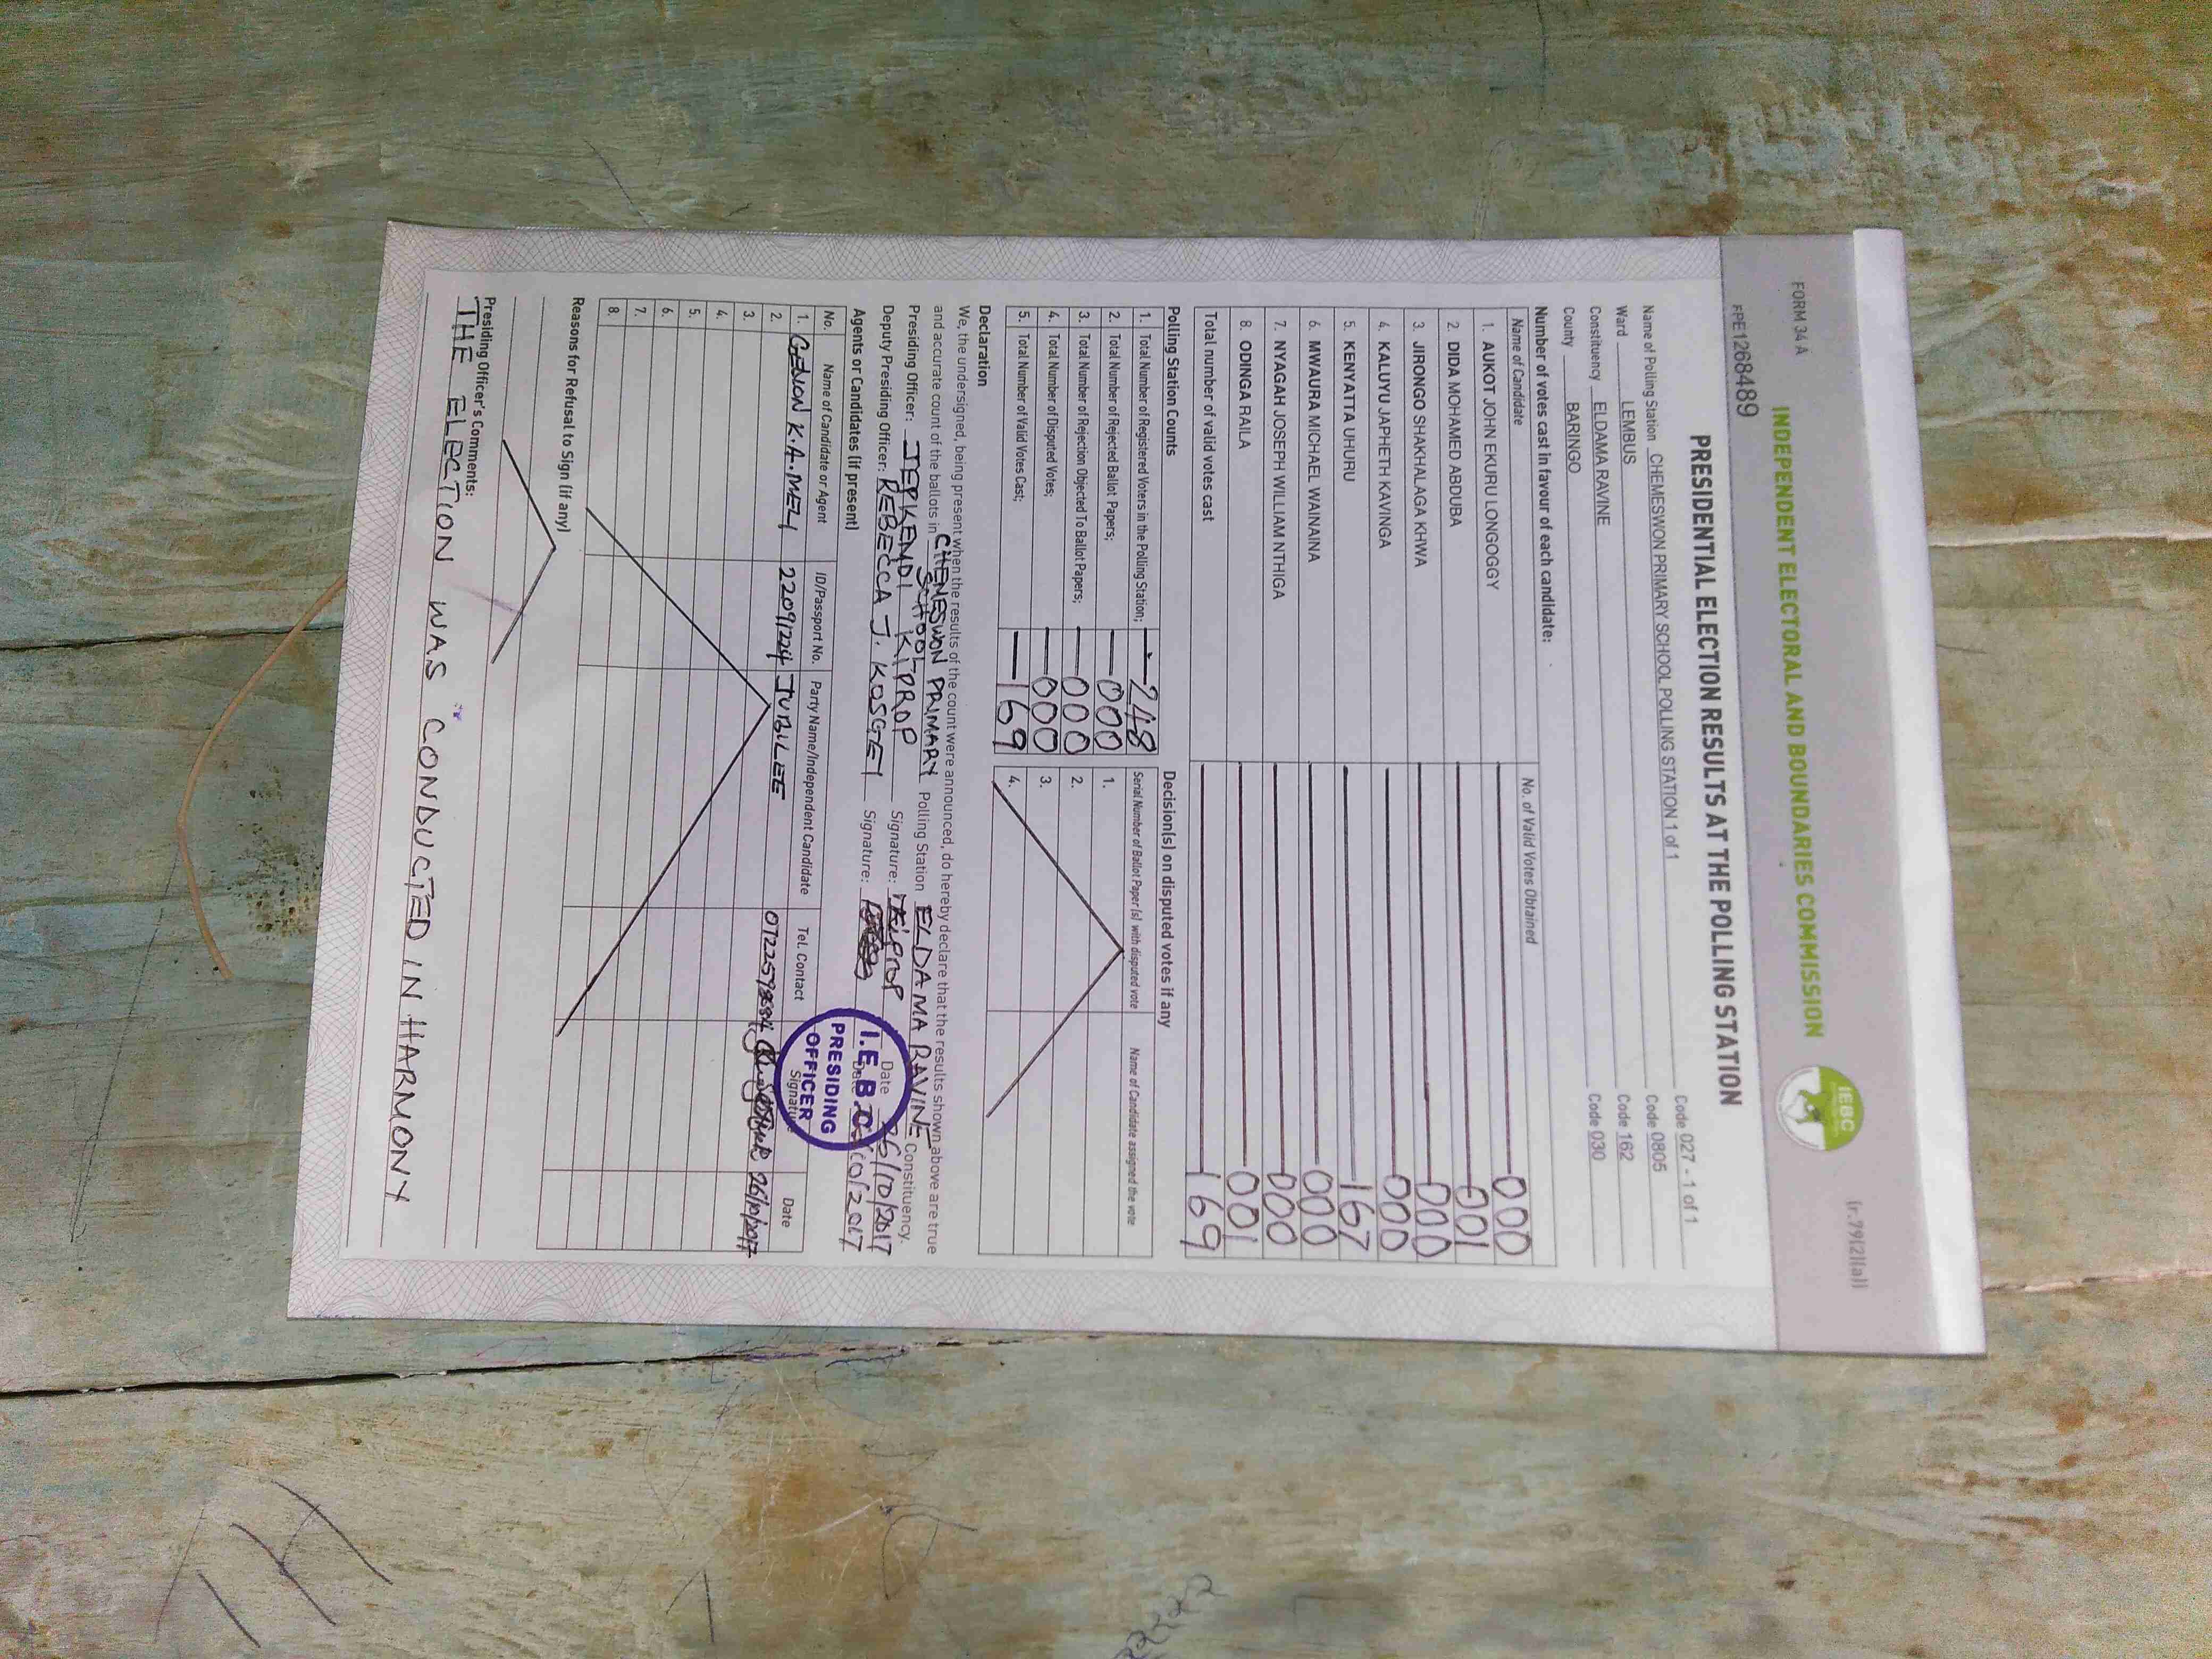 FORM 34 A
(r.79(2)(a))
INDEPENDENT ELECTORAL AND BOUNDARIES COMMISSION
IEBC
FPE1268489
PRESIDENTIAL ELECTION RESULTS AT THE POLLING STATION
Name of Polling Station CHEMESWON PRIMARY SCHOOL POLLING STATION 1 of 1 Code 027 - 1 of 1
Ward LEMBUS Code 0805
Constituency ELDAMA RAVINE Code 162
County BARINGO Code 030
Number of votes cast in favour of each candidate:
Name of Candidate No. of Valid Votes Obtained
1. AUKOT JOHN EKURU LONGOGGY 000
2. DIDA MOHAMED ABDUBA 001
3. JIRONGO SHAKHALAGA KHWA 000
4. KALUYU JAPHETH KAVINGA 000
5. KENYATTA UHURU 167
6. MWAURA MICHAEL WAINAINA 000
7. NYAGAH JOSEPH WILLIAM NTHIGA 000
8. ODINGA RAILA 001
Total number of valid votes cast 169
Polling Station Counts
1. Total Number of Registered Voters in the Polling Station; 248
2. Total Number of Rejected Ballot Papers; 000
3. Total Number of Rejection Objected To Ballot Papers; 000
4. Total Number of Disputed Votes; 000
5. Total Number of Valid Votes Cast; 169
Decision(s) on disputed votes if any
Serial Number of Ballot Paper (s) with disputed vote Name of Candidate assigned the vote
1.
2.
3.
4.
Declaration
We, the undersigned, being present when the results of the count were announced, do hereby declare that the results shown above are true
and accurate count of the ballots in CHEMESWON PRIMARY SCHOOL Polling Station ELDAMA RAVINE Constituency.
Presiding Officer: JEPKEMOI KIPROP Signature: Kiprop Date 26/10/2017
Deputy Presiding Officer: REBECCA J. KOSGEI Signature: Date /10/2017
I.E.B.C
PRESIDING
OFFICER
Agents or Candidates (if present)
No. Name of Candidate or Agent ID/Passport No. Party Name/Independent Candidate Tel. Contact Signature Date
1. GEDION K.A. MELI 22091224 JUBILEE 26/10/2017
2.
3.
4.
5.
6.
7.
8.
Reasons for Refusal to Sign (if any)
Presiding Officer's Comments:
THE ELECTION WAS CONDUCTED IN HARMONY